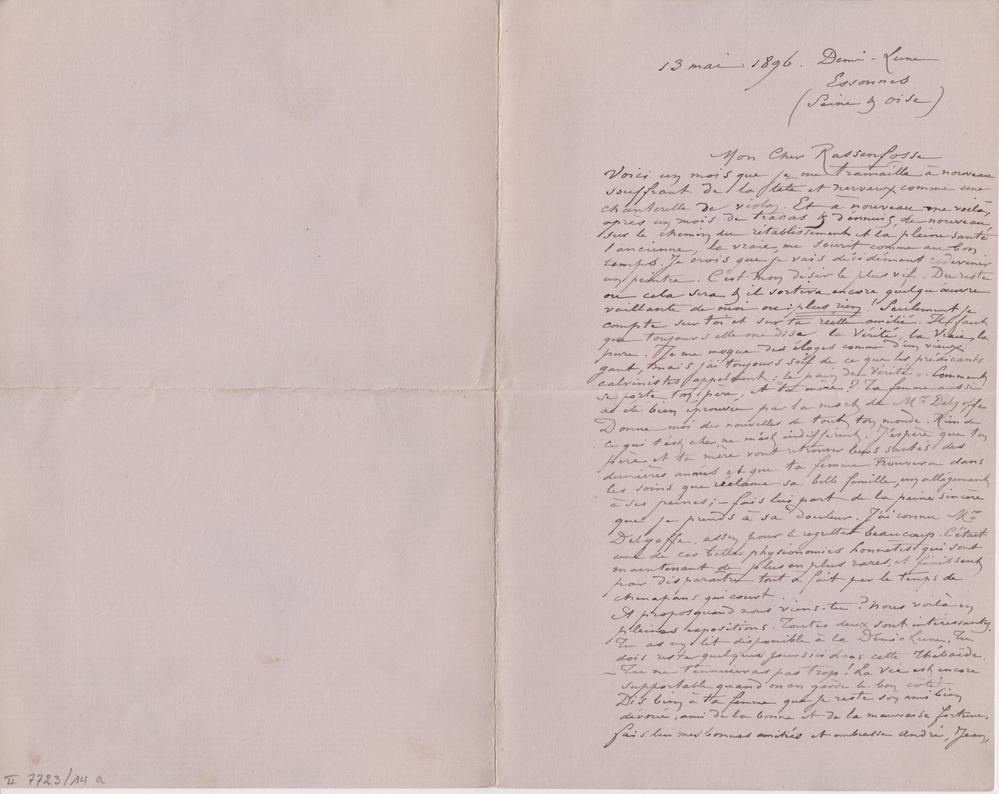 13 mai 1896. Demi-Lune
Essonnes
(Seine & Oise)
Mon Cher Rassenfosse
Voici un mois que je me tramaille à nouveau
souffrant de la tête et nerveux comme une
chanterelle de violon. Et à nouveau me voilà,
après un mois de tracas & d'ennuis, de nouveau
sur le chemin du rétablissement et la pleine santé
l'ancienne, la vraie, me sourit comme au bon
temps. Je crois que je vais décidément redevenir
un peintre. C'est mon désir le plus vif. Du reste
ou cela sera & il sortira encore quelqu'œuvre
vaillante de moi ou plus rien! Seulement je
compte sur toi et sur ta réelle amitié. Il faut
que toujours elle me dise la Vérité, la vraie, la
pure. Je me moque des éloges comme d'un vieux
gant, mais j'ai toujours soif de ce que les prédicants
calvinistes appellent: "le pain de Vérité". Comment
se porte ton père, et ta mère? Ta femme aussi
a été bien éprouvée par la mort de Mr Delgoffe
Donne moi des nouvelles de tout ton monde. Rien de
ce qui t'est cher ne m'est indifférent. J'espère que ton
père et ta mère vont retrouver leurs santés des
dernières années et que ta femme trouvera dans
les soins que réclame sa belle famille, un allègement
à ses peines; – fais lui part de la peine sincère
que je prends à sa douleur. J'ai connu Mr
Delgoffe, assez pour le regretter beaucoup. C'était
une de ces belles physionomies honnêtes qui sont
maintenant de plus en plus rares, et finissent
par disparaître tout à fait par le temps de
chenapans qui court.
A propos quand nous viens-tu? Nous voilà en
pleines expositions. Toutes deux sont intéressantes.
Tu as un lit disponible à la Demi-Lune. Tu
dois rester quelques jours ici dans cette Thébaïde.
– Tu ne t'ennuieras pas trop! La vie est encore
supportable quand on en garde le bon côté!
Dis bien à ta femme que je reste son ami bien
dévoué, ami de la bonne et de la mauvaise fortune.
fais lui mes bonnes amitiés et embrasse André, Jean,
II 7723/14 a